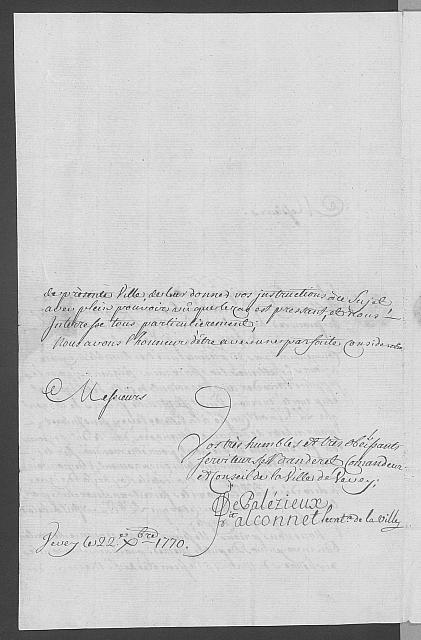 de présente Ville, de leur donner vos instructions à ce Sujet
avec plein pouvoir, vû que le cas est pressant, et nous
Interresse tous particulierement,
Nous avons l'honneur d'être avec une parfaite consideration
Messieurs
Vos très humbles et très obéissants
serviteurs, Banderet Comandeur
et Conseil de la Ville de Vevey;
De Palézieux
falconnet secret.re de la Ville
Vevey le 22e Xbre 1770.